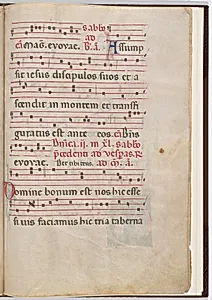 sabbo
ad
Mag. evovae. B. a. Assump
sit iesus discipulos suos et a
scendit in montem et transfi
guratus est ante eos.
Dnica. ii. in xl. sabbo
precedenti ad vesperas. R
evovae. ad
Domine bonum est nos hic esse
si vis faciamus hic tria taberna